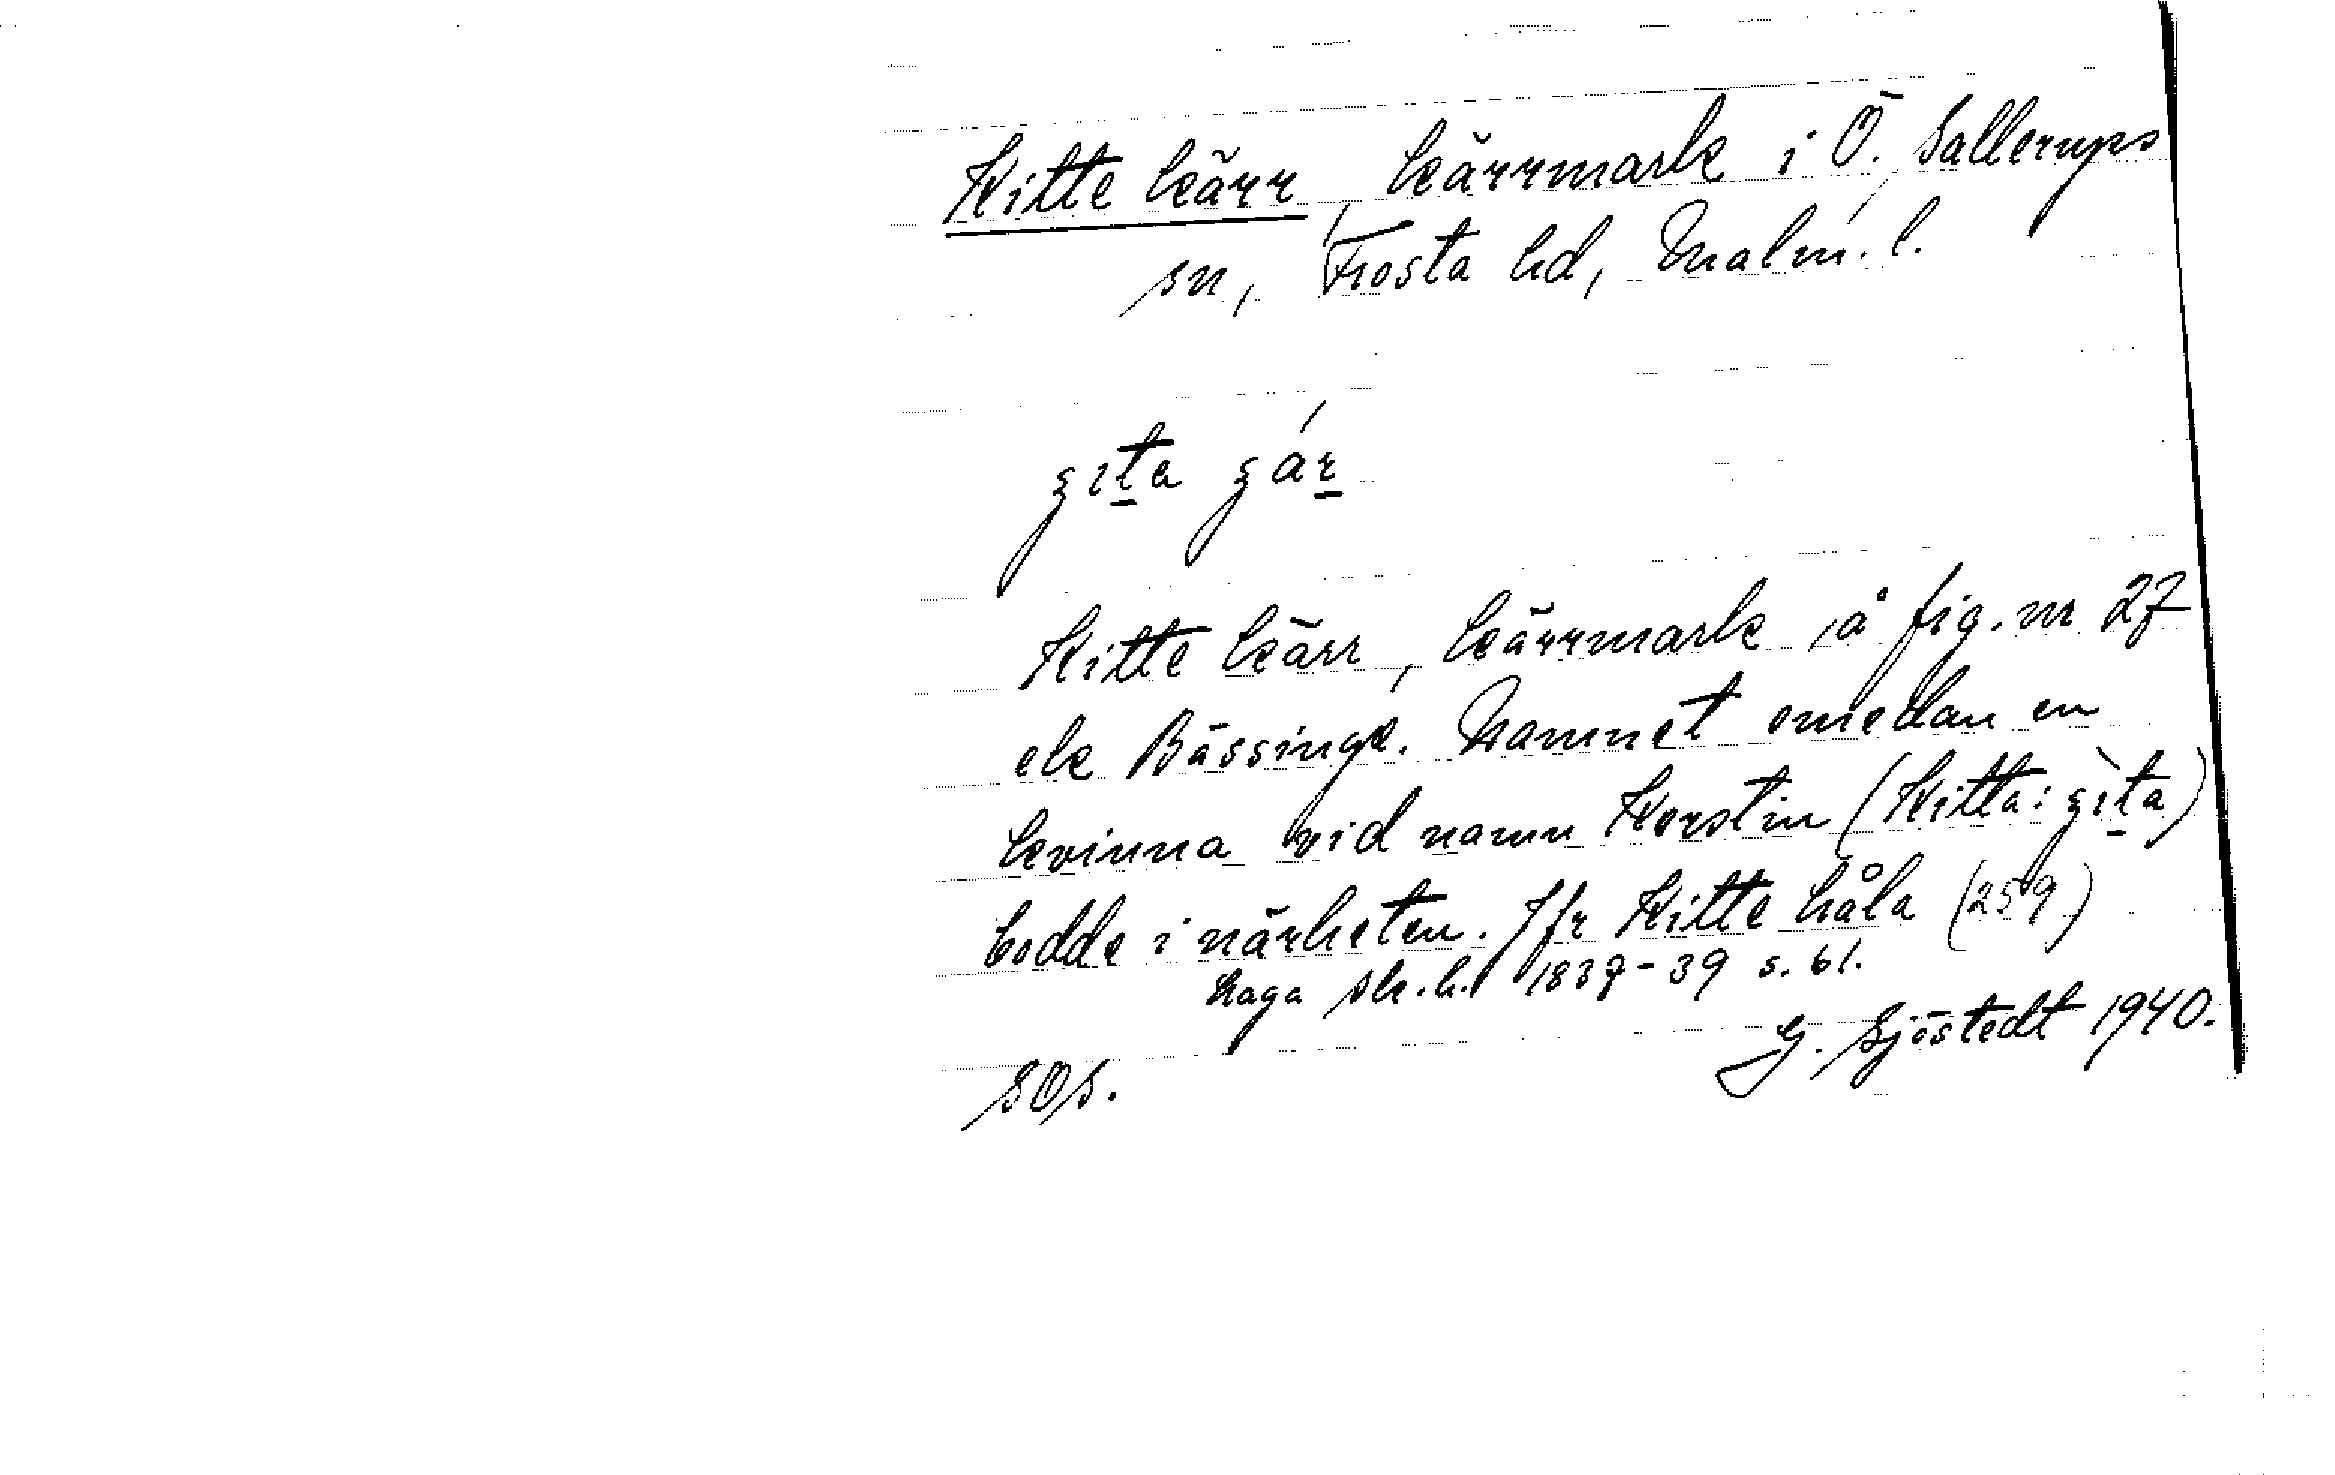 Kitte kärr, kärrmark i Ö. Sallerups
sn, Frosta hd, Malm. l.
Kitte kärr, kärrmark å fig. nr 27
ek Bässinge. Namnet emedan en
kvinna vid namn Kerstin (Kitta:
bodde i närheten. Jfr Kitte håla (259)
Laga sk. h. 1837-39 s. 61.
G. Sjöstedt 1940.
SOS.